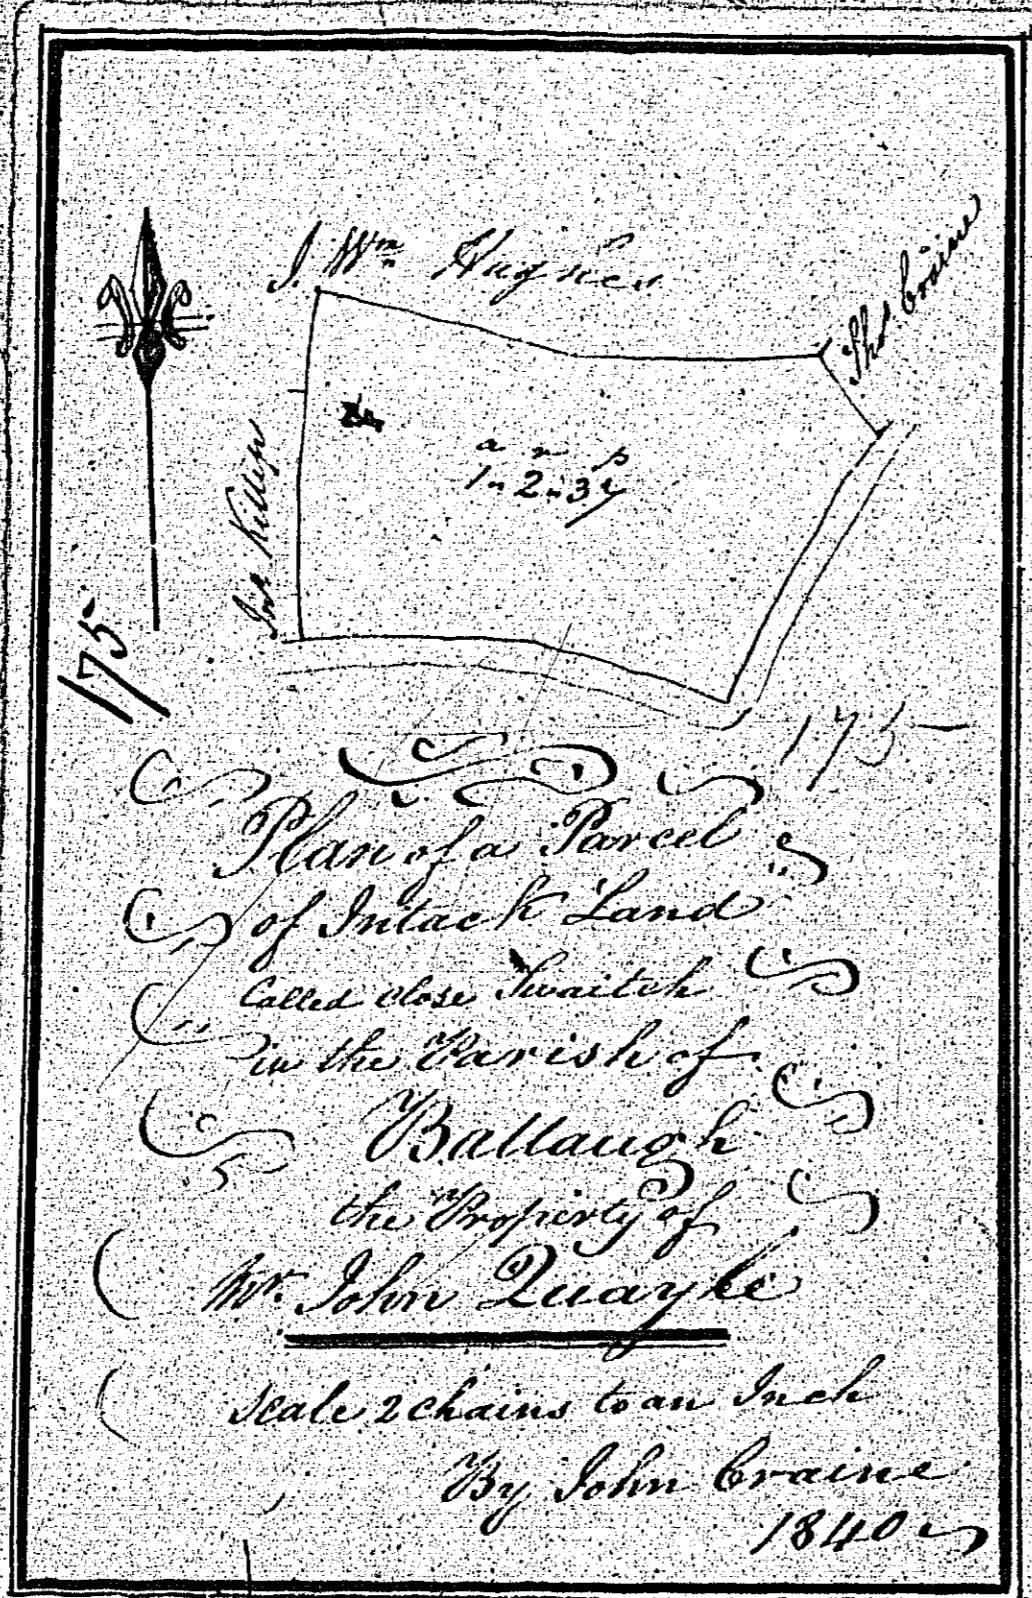 J. Wm Hughes
Thos. Craine
a r p
1 " 2 " 37
Jno Killip
175
175
Plan of a Parcel
of Intack Land
Called Close Thwaitch
in the Parish of
Ballaugh
the Property of
Mr. John Quayle
Scale 2 chains to an Inch
By John Craine
1840